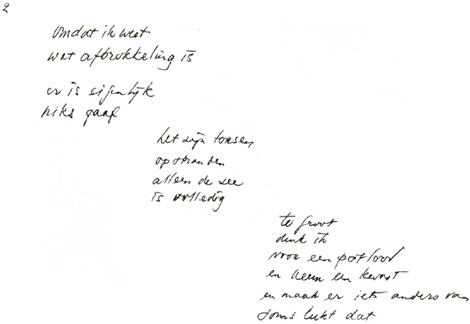 2
omdat ik weet
wat afbrokkeling is
er is eigenlijk
niks gaaf
het zijn torsen
op stranden
alleen de zee
is volledig
te groot
denk ik
voor een potlood
en neem een kwast
en maak er iets anders van
soms lukt dat